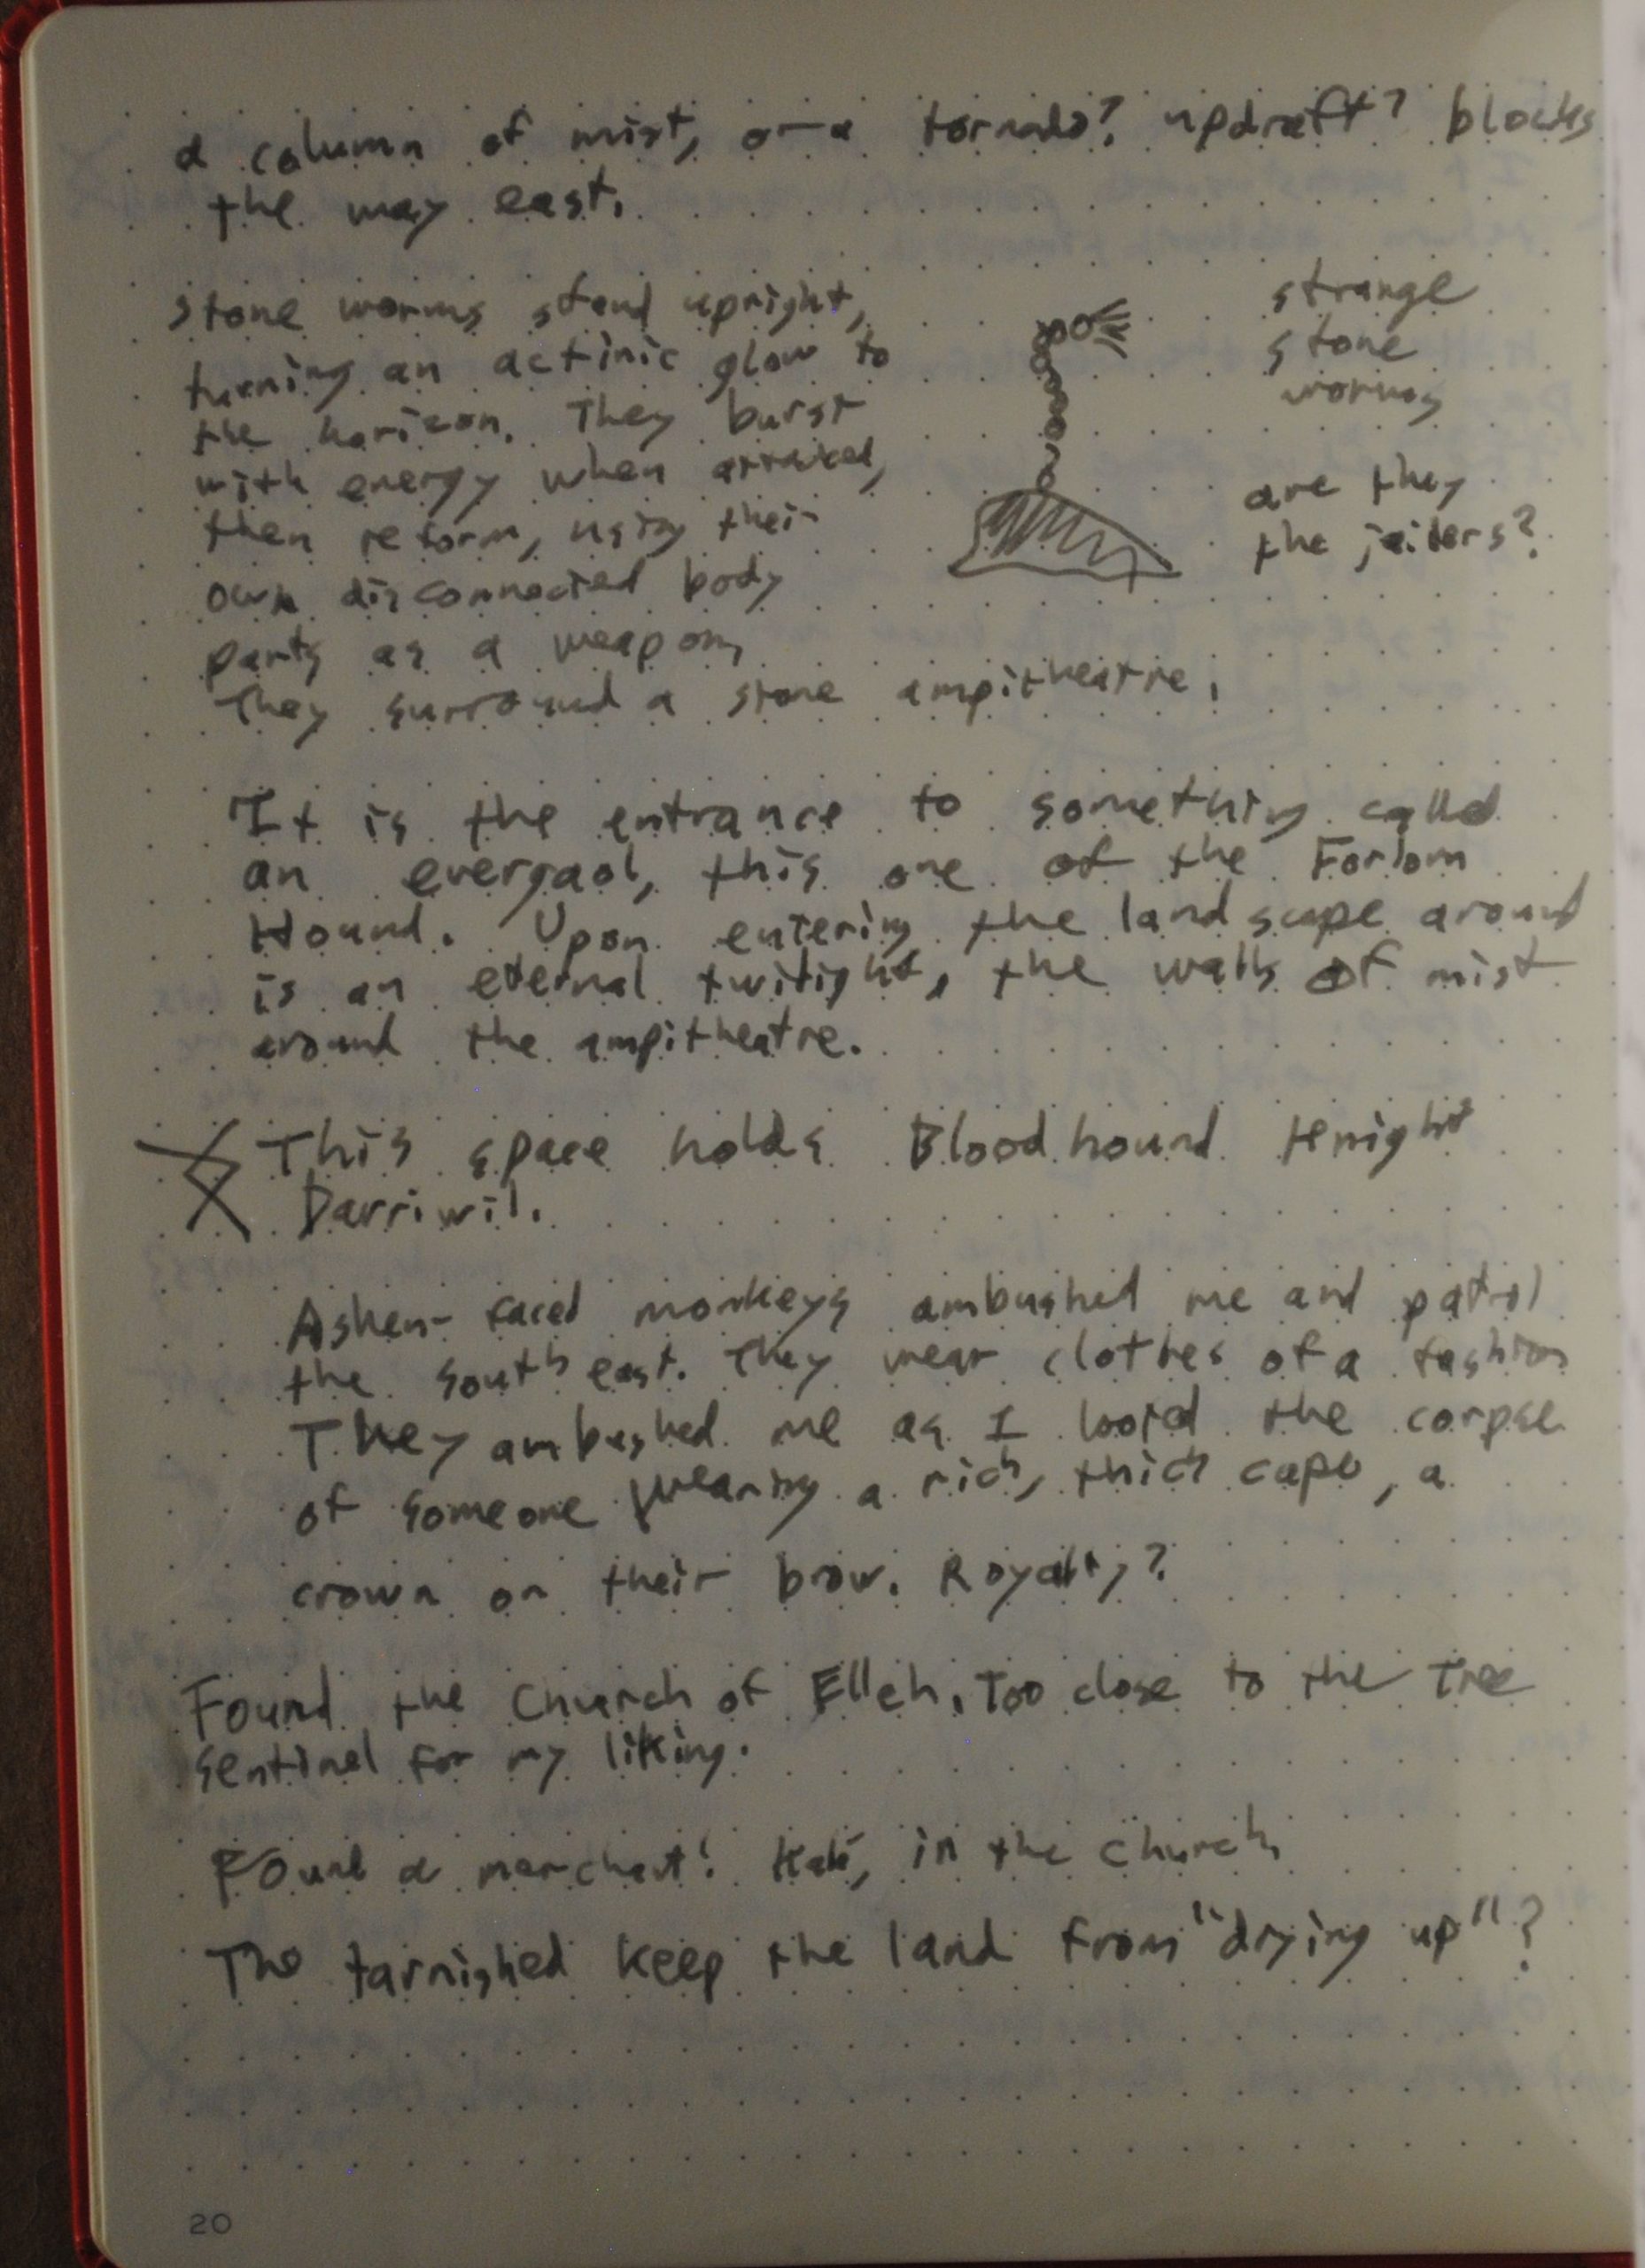 a column of mist, or a tornado? updraft? blocks
the way east.
Stone worms stand upright,
turning an actinic glow to
the horizon. They burst
with energy when attacked,
then reform, using their
own disconnected body
parts as a weapon,
They surround a stone ampitheatre.
strange
stone
worms
are they
the jailers?
It is the entrance to something called
an evergaol, this one of the Forlorn
Hound. Upon entering the landscape around
is an eternal twilight, the walls of mist
around the ampitheatre.
This space holds Bloodhound Knight
Darriwil.
Ashen-faced monkeys ambushed me and patrol
the southeast. They wear clothes of a fashion
They ambushed me as I looted the corpse
of someone wearing a rich, thick cape, a
crown on their brow. Royalty?
Found the Church of Elleh. Too close to the Tree
Sentinel for my liking.
Found a merchant! Kalé, in the church
The tarnished keep the land from "drying up"?
20